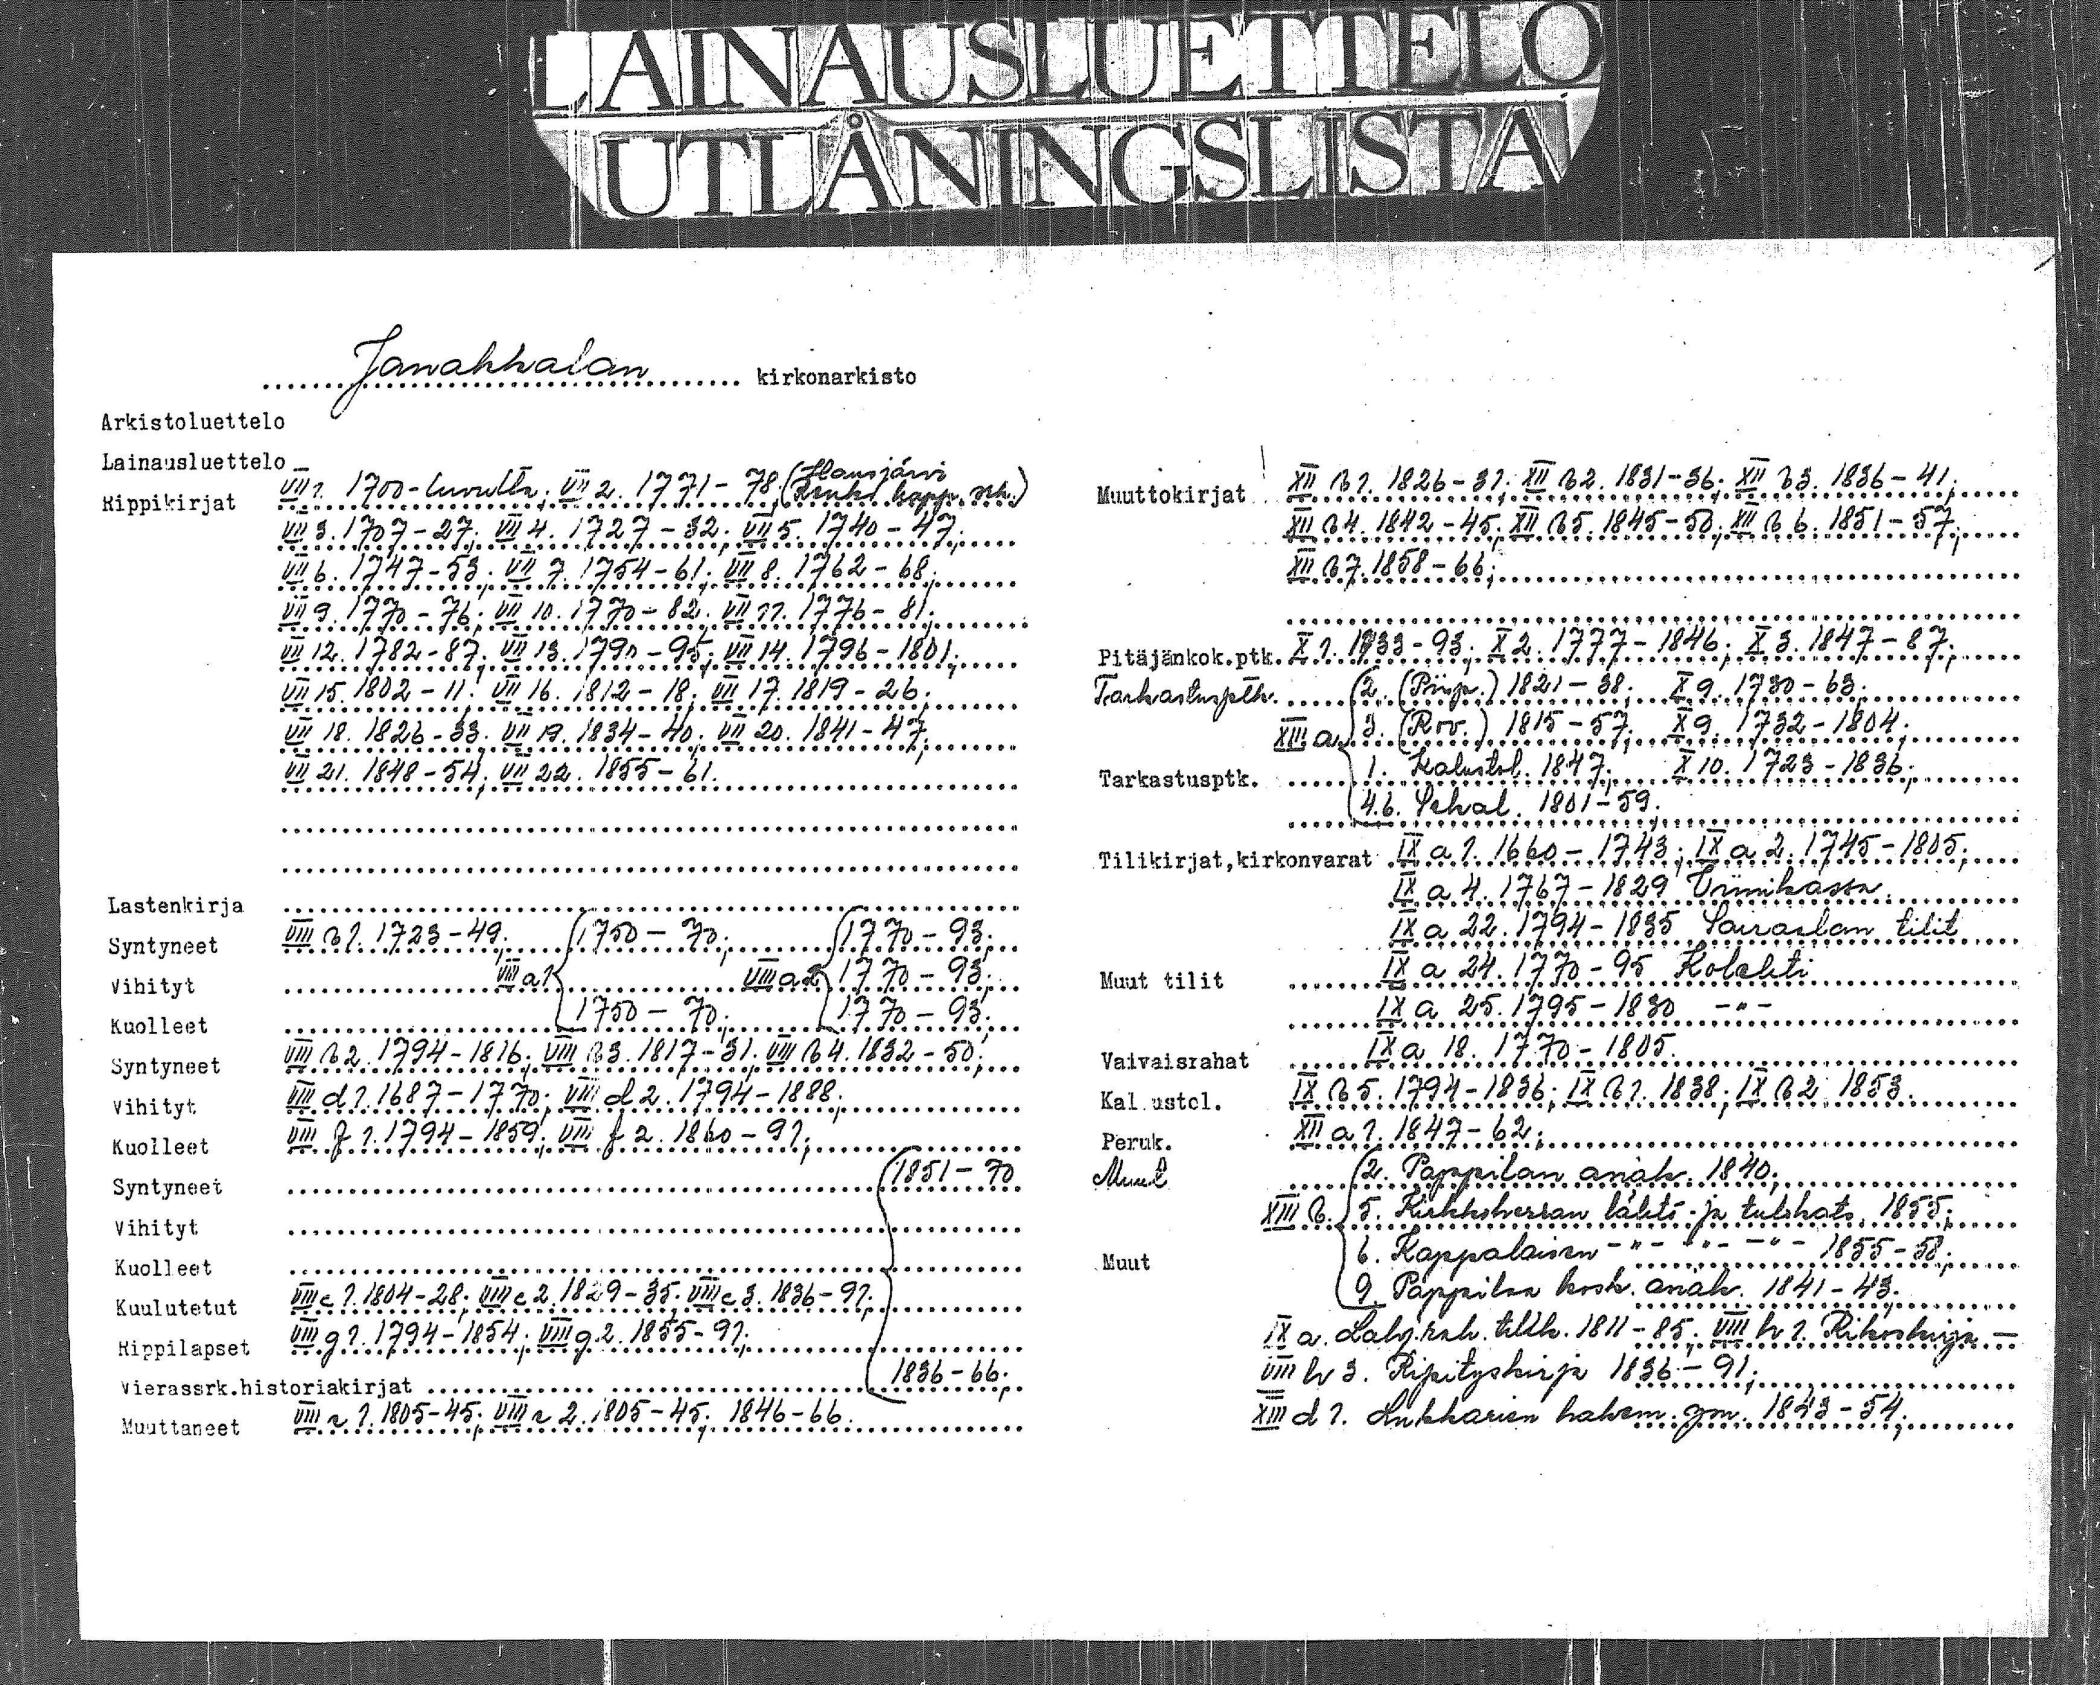 LAINAUSLUETTELO
UTLÅNINGSLISTA
Janakkalan kirkonarkisto
Arkistoluettelo
Lainausluettelo
Rippikirjat VII 1. 1700-luvulta; VII 2. 1771-78 (Hausjärvi kapp. srk.)
VII 3. 1707-27; VII 4. 1727-32; VII 5. 1740-47;
VII 6. 1747-53; VII 7. 1754-61; VII 8. 1762-68;
VII 9. 1770-76; VII 10. 1770-82; VII 11. 1776-81;
VII 12. 1782-87; VII 13. 1790-95; VII 14. 1796-1801;
VII 15. 1802-11; VII 16. 1812-18; VII 17. 1819-26;
VII 18. 1826-33; VII 19. 1834-40; VII 20. 1841-47;
VII 21. 1848-54; VII 22. 1855-61.
Lastenkirja
Syntyneet VIII B 1. 1723-49; 1750-70; 1770-93;
Vihityt VIII a 1 VIII a 2 1770-93;
Kuolleet 1750-70; 1770-93;
Syntyneet VIII B 2. 1794-1816; VIII B 3. 1817-31; VIII B 4. 1832-50;
Vihityt VIII d 1. 1687-1770; VIII d 2. 1794-1888;
Kuolleet VIII f 1. 1794-1859; VIII f 2. 1860-91;
Syntyneet 1851-70
Vihityt
Kuolleet
Kuulutetut VIII c 1. 1804-28; VIII c 2. 1829-35; VIII c 3. 1836-91;
Rippilapset VIII g 1. 1794-1854; VIII g 2. 1855-91;
Vierassrk.historiakirjat 1836-66;
Muuttaneet VIII a 1. 1805-45; VIII a 2. 1805-45; 1846-66.
Muuttokirjat XII B 1. 1826-31; XII B 2. 1831-36; XII B 3. 1836-41;
XII B 4. 1842-45; XII B 5. 1845-50; XII B 6. 1851-57;
XII B 7. 1858-66;
Pitäjänkok.ptk. X 1. 1733-93; X 2. 1777-1846; X 3. 1847-87;
Tarkastusptk. 2. (Piisp.) 1821-38; X 9. 1730-63;
XIII a 3. (Rov.) 1815-57; X 9. 1732-1804;
Tarkastusptk. 1. Kalustol. 1847; X 10. 1723-1836;
4.6. Sekal. 1801-59;
Tilikirjat,kirkonvarat IX a 1. 1660-1743; IX a 2. 1745-1805;
IX a 4. 1767-1829 Viinikassa.
IX a 22. 1794-1835 Sairaalan tilit
Muut tilit IX a 24. 1770-95 Kolehti
IX a 25. 1795-1830 -"-
Vaivaisrahat IX a 18. 1770-1805.
Kal.ustol. IX B 5. 1794-1836; IX B 1. 1838; IX B 2. 1853.
Peruk. XII a 1. 1847-62;
Muut 2. Pappilan anak. 1840;
XIII B. 5. Kirkkoherran lähtö- ja tulokats. 1855;
Muut 6. Kappalaisen -"- -"- -"- 1855-58;
9. Pappilaa kosk. anak. 1841-43.
IX a. Lahj.rah. tilik. 1811-85; VIII h 1. Rikoskirja -
VIII h 3. Ripityskirja 1836-91;
XIII d 1. Lukkarien hakem. ym. 1843-54;